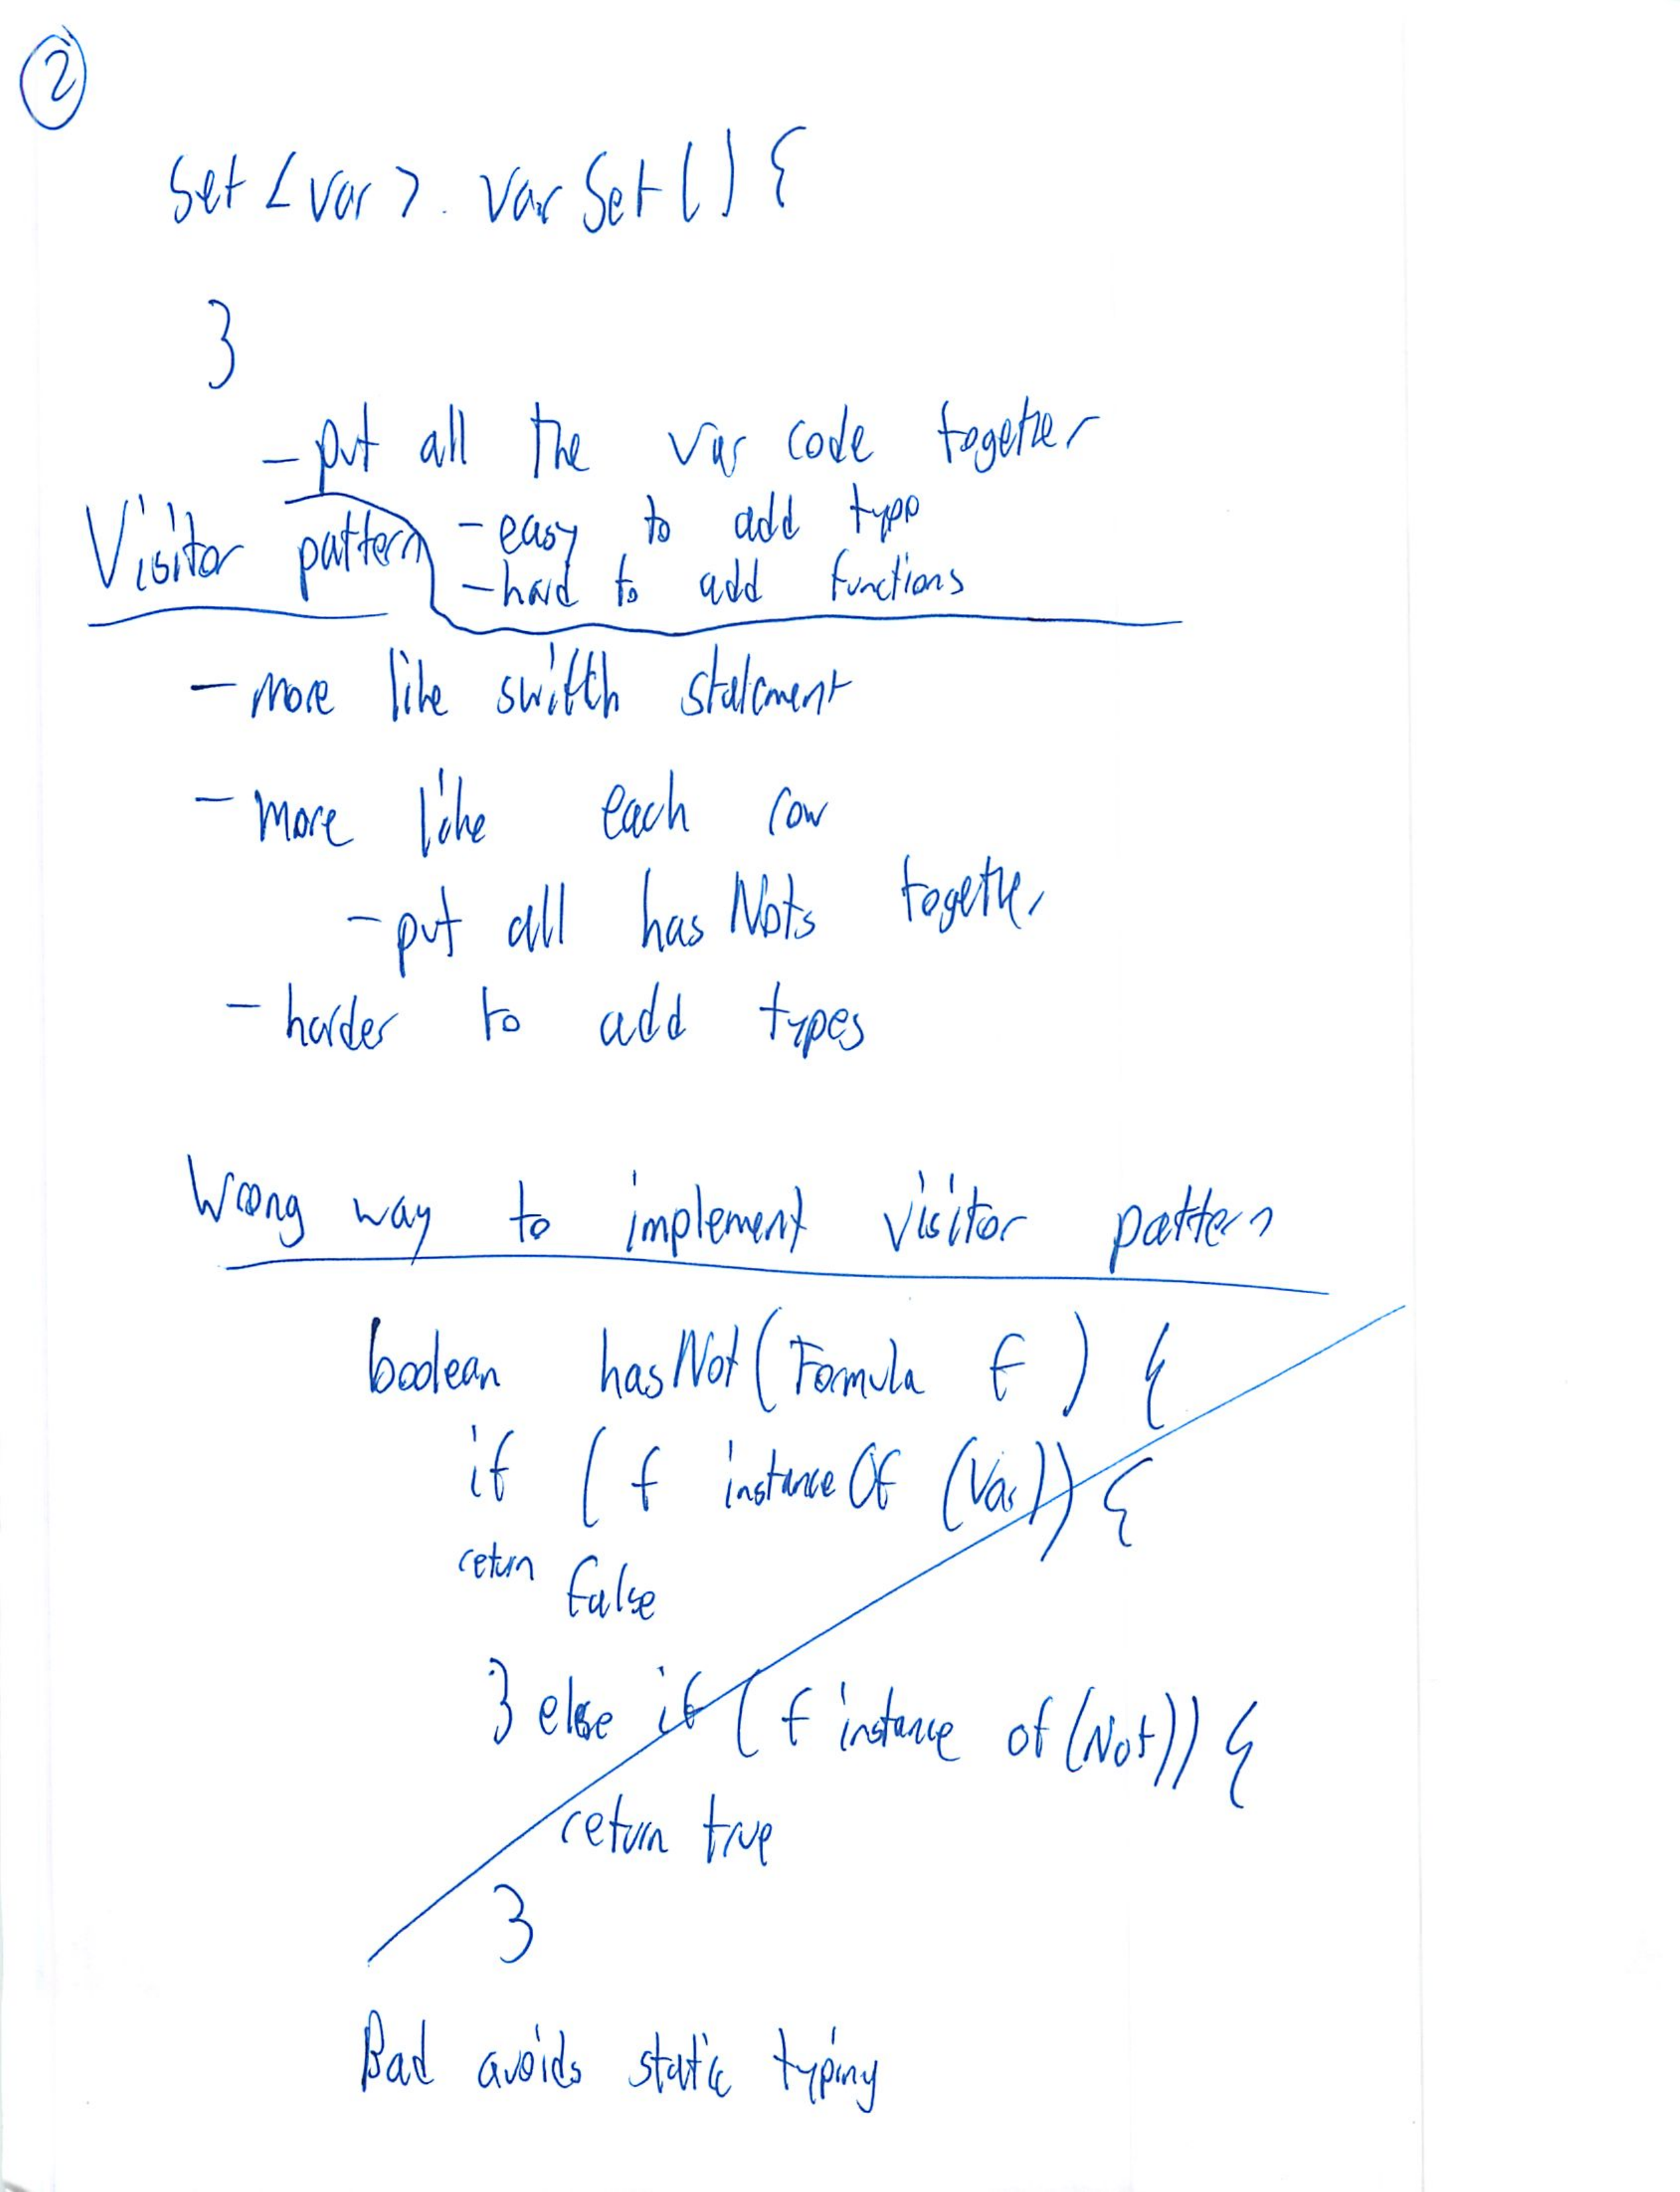 2
Set<Var>. VarSet() {
}
- put all the var code together
- easy to add type
- hard to add functions
Visitor pattern
- more like switch statement
- more like each row
- put all hasNots together
- harder to add types
Wrong way to implement visitor pattern
boolean hasNot(Formula f) {
if (f instanceOf (Var)) {
return false
} else if (f instance of (Not)) {
return true
}
Bad avoids static typing